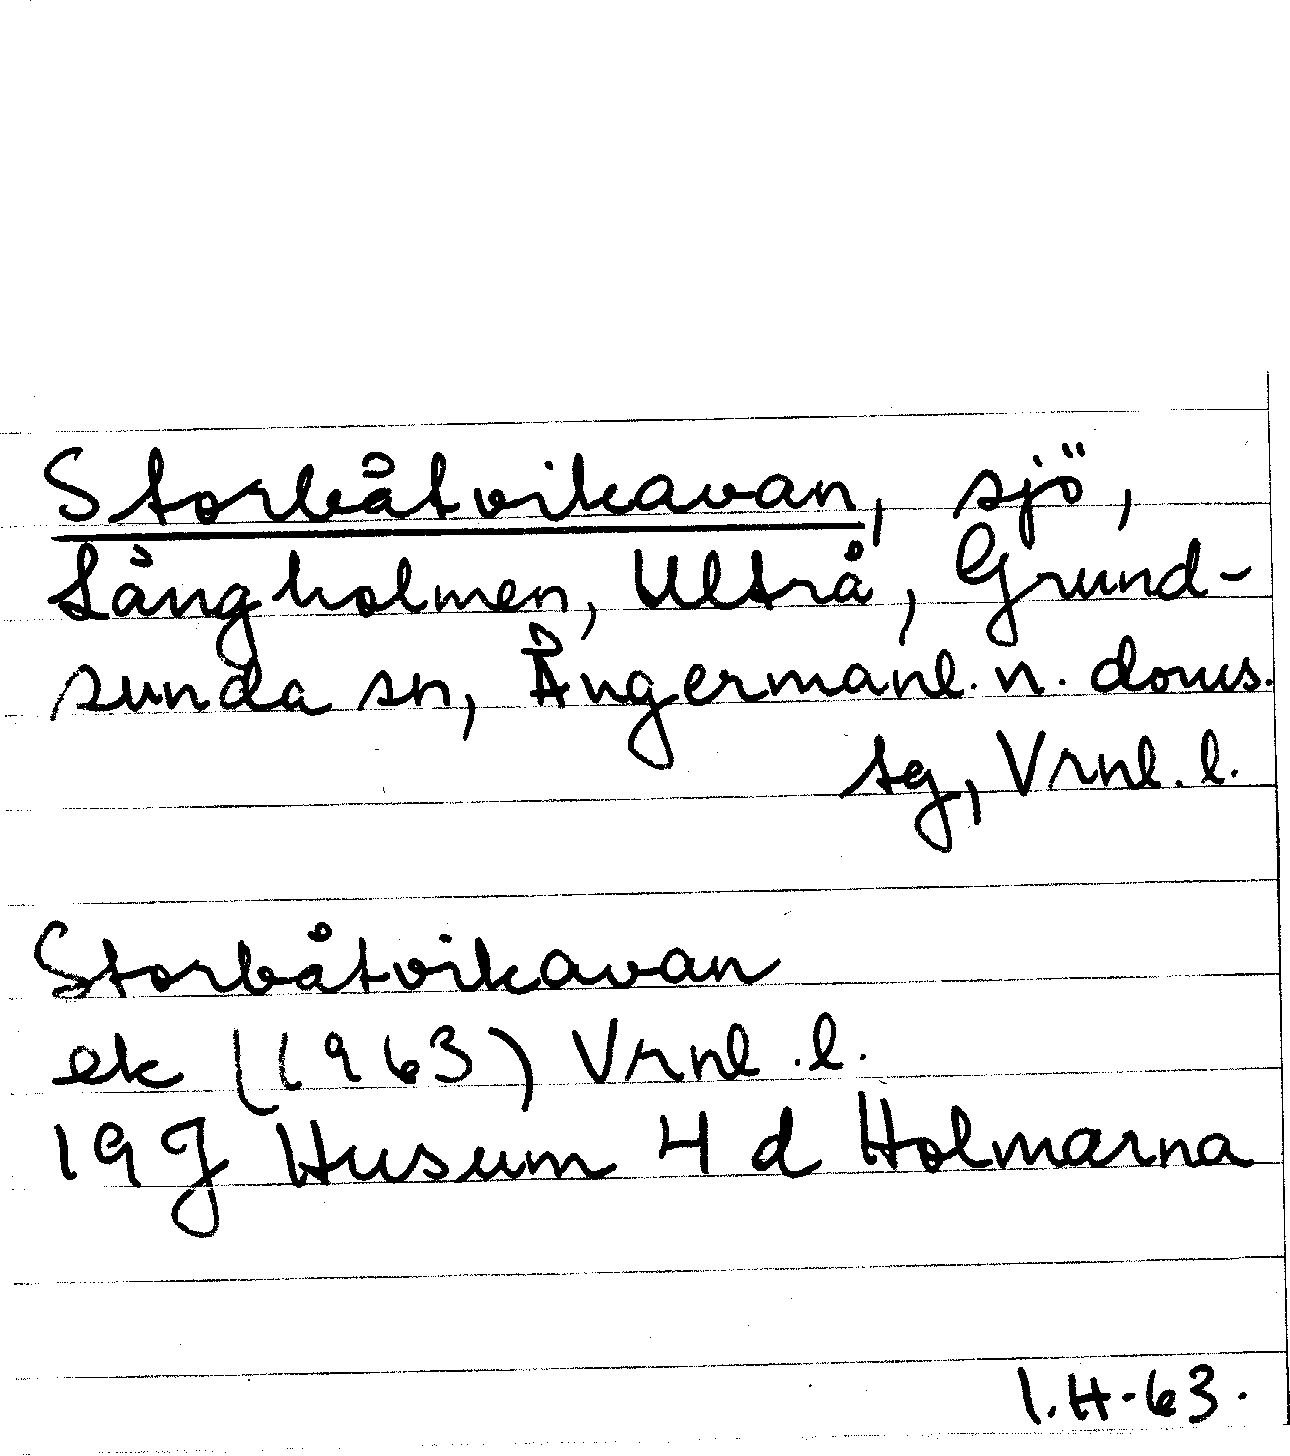 Storbåtvikavan, sjö,
Långholmen, Ultrå, Grund-
sunda sn, Ångermanl. n. doms.
tg, Vrnl. l.
Storbåtvikavan
ek (1963) Vrnl. l.
19J Husum 4d Holmarna
I.H-63.